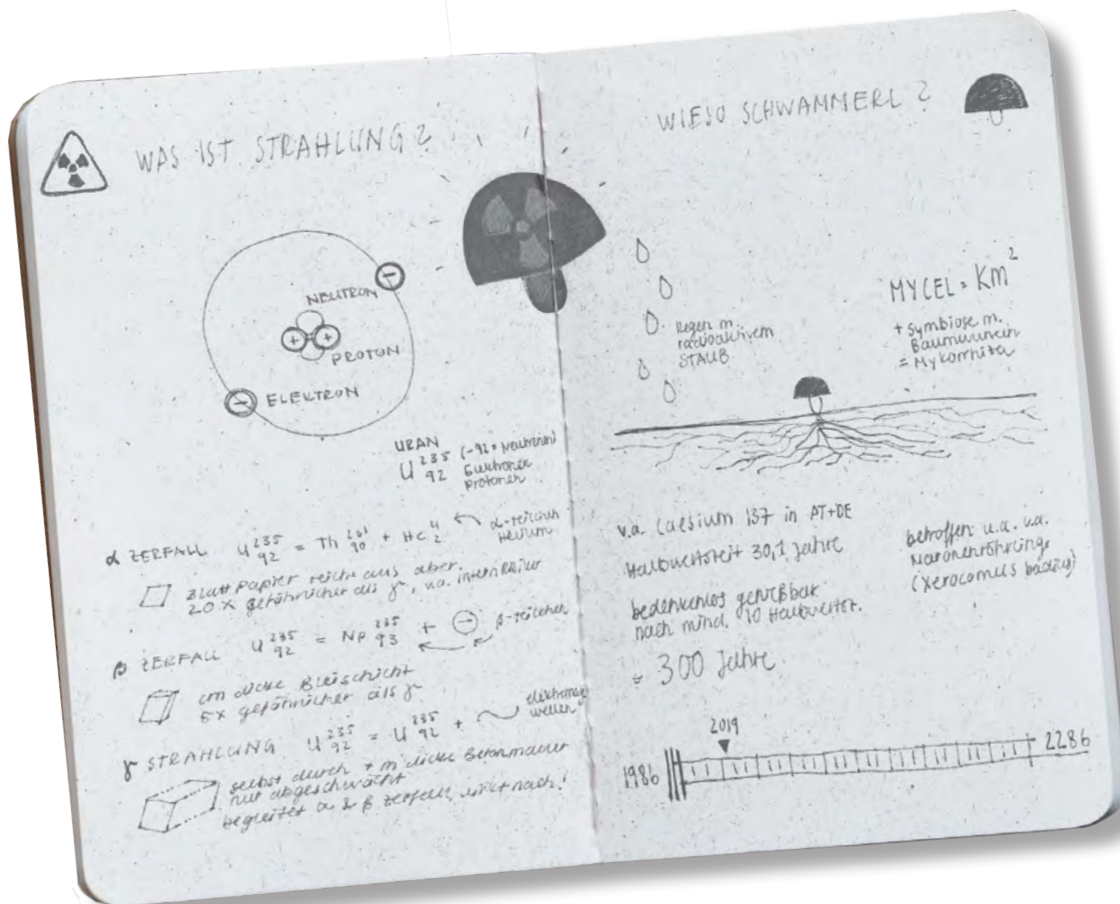 WAS IST STRAHLUNG?
NEUTRON
PROTON
ELEKTRON
URAN
U 235 92 (-92 = Neutronen)
Elektronen
Protonen
α ZERFALL U 235 92 = Th 231 90 + He 4 2
α-Teilchen
Helium
Blatt Papier reicht aus aber
20 x gefährlicher als γ, v.a. intern
β ZERFALL U 235 92 = Np 235 93 + - β-Teilchen
cm dicke Bleischicht
5x gefährlicher als γ
γ STRAHLUNG U 235 92 = U 235 92 +
elektromag
wellen
selbst durch + m dicke Betonmauer
nur abgeschwächt
begleitet α & β zerfall, wirkt nach!
WIESO SCHWAMMERL?
Regen m.
radioaktivem
STAUB
MYCEL = Km²
+ Symbiose m.
Baumwurzeln
= Mykorrhiza
v.a. Caesium 137 in AT+DE
Halbwertszeit 30,1 Jahre
bedenkenlos genießbar
nach mind. 10 Halbwertsz.
= 300 Jahre
betroffen u.a. v.a.
Maronenröhrling
(xerocomus badius)
2019
1986
2286